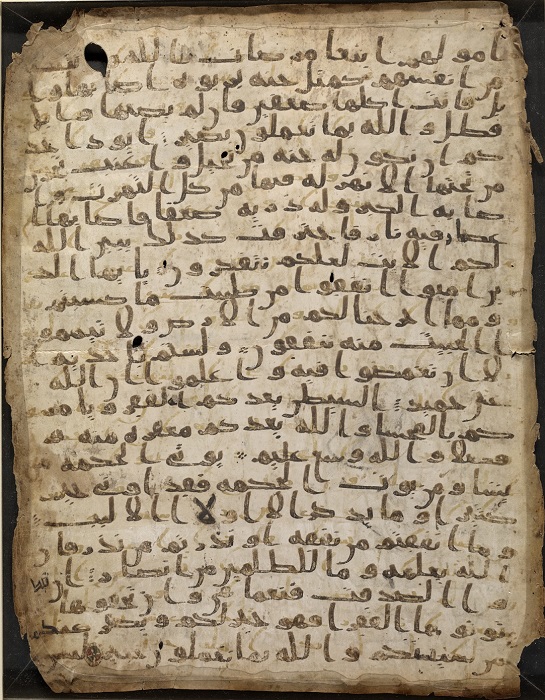 امولهم ابتغا مرضات الله وتثبيتا
من انفسهم كمثل جنه بربوه اصابها وا
بل فاتت اكلها ضعفين فان لم يصبها وابل
فطل والله بما تعملون بصير ايود احد
كم ان تكون له جنه من نخيل واعنب تجري
من تحتها الانهر له فيها من كل الثمرت وا
صابه الكبر وله ذريه ضعفا فاصابها ا
عصار فيه نار فاحترقت كذلك يبين الله
لكم الايت لعلكم تتفكرون يايها الذ
ين امنوا انفقوا من طيبت ما كسبتم
ومما اخرجنا لكم من الارض ولا تيممو
ا الخبيث منه تنفقون ولستم باخذيه
الا ان تغمضوا فيه واعلموا ان الله
غني حميد الشيطن يعدكم الفقر ويامر
كم بالفحشا والله يعدكم مغفره منه و
فضلا والله وسع عليم يوتي الحكمه من
يشا ومن يوت الحكمه فقد اوتي خير
كثيرا وما يذكر الا اولا الالبب
وما انفقتم من نفقه او نذرتم من نذر فان
الله يعلمه وما للظلمين من انصار ان
تبدوا الصدقت فنعما هي وان تخفوها
وتوتوها الفقرا فهو خير لكم ويكفر عنكم
من سيتكم والله بما تعملون خبير ليس